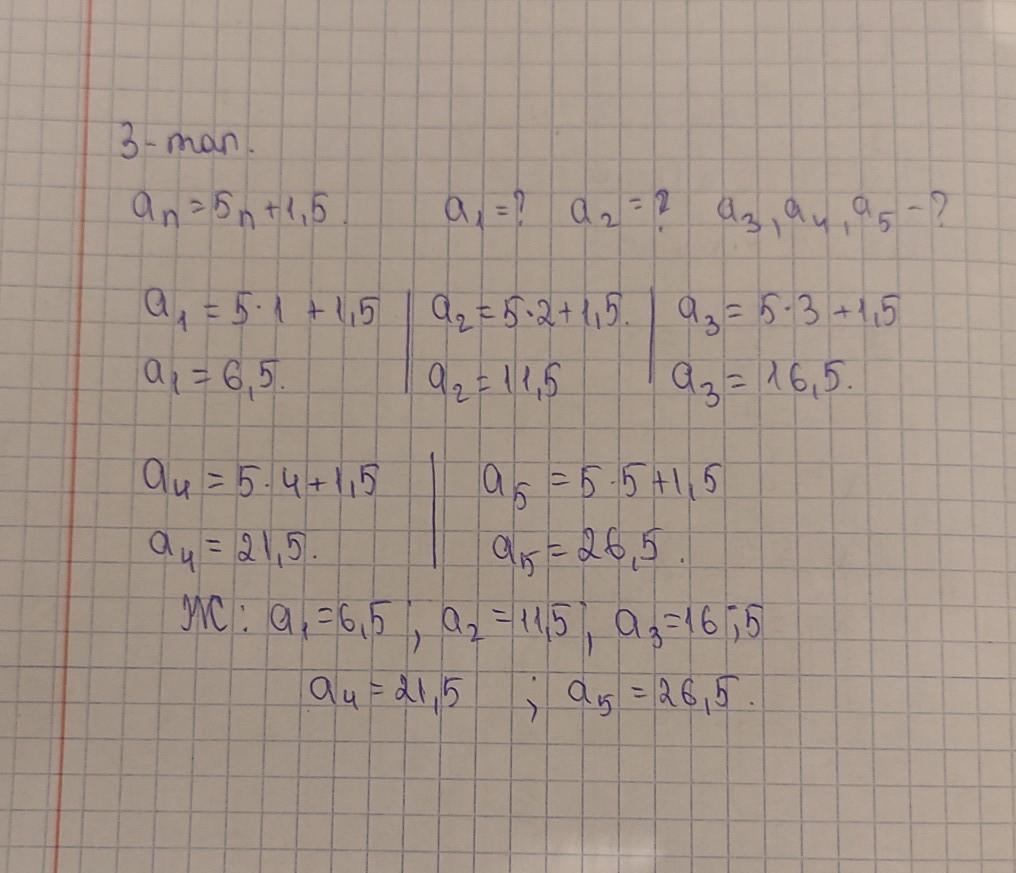 3-тап.
aₙ = 5ₙ + 1,5. a₁ = ? a₂ = ? a₃, a₄, a₅ - ?
a₁ = 5·1 + 1,5 | a₂ = 5·2 + 1,5. | a₃ = 5·3 + 1,5
a₁ = 6,5. | a₂ = 11,5 | a₃ = 16,5.
a₄ = 5·4 + 1,5 | a₅ = 5·5 + 1,5
a₄ = 21,5. | a₅ = 26,5.
Ж: a₁ = 6,5 ; a₂ = 11,5 ; a₃ = 16;5
a₄ = 21,5 ; a₅ = 26,5.